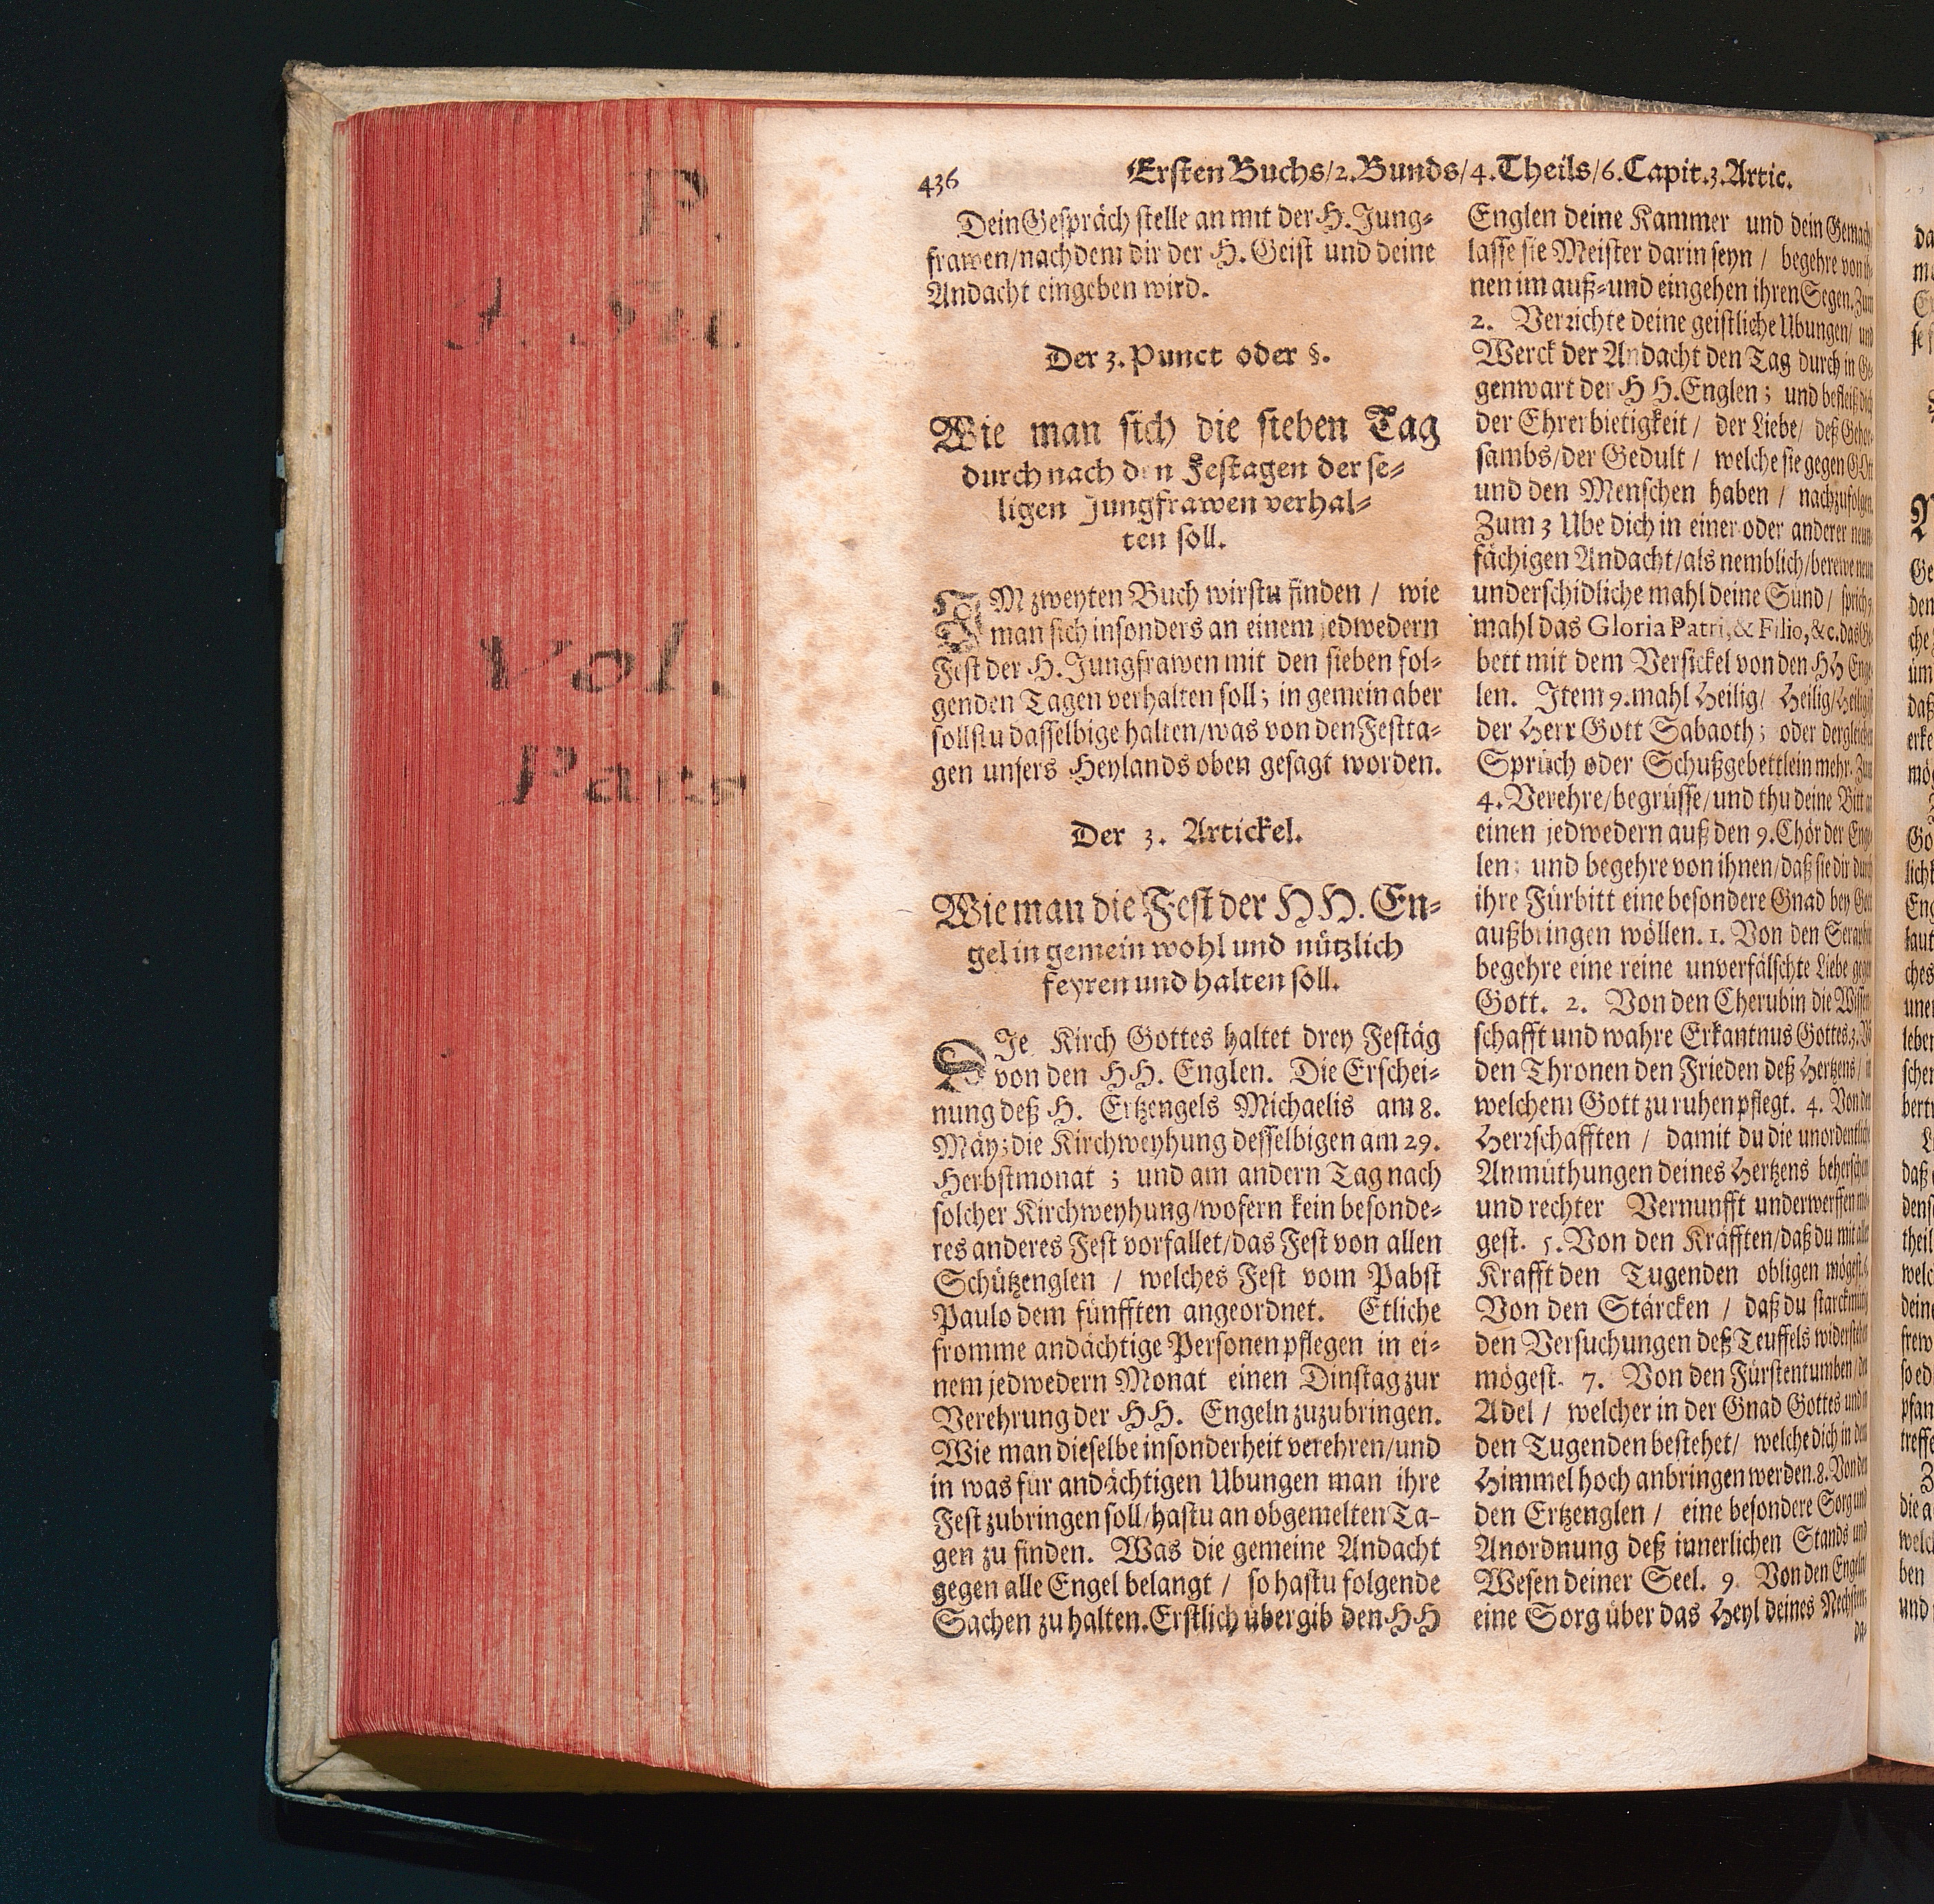 436
Ersten Buchs/2.Bunds/4.Theils/6.Capit.3.Artic.
Dein Gespräch stelle an mit der H. Jung⸗
frawen/nachdem dir der H. Geist und deine
Andacht eingeben wird.
Der 3. Punct oder §.
Wie man sich die sieben Tag
durch nach den Festagen der se⸗
ligen Jungfrawen verhal⸗
ten soll.
IM zweyten Buch wirstu finden / wie
man sich insonders an einem jedwedern
Fest der H. Jungfrawen mit den sieben fol⸗
genden Tagen verhalten soll; in gemein aber
sollstu dasselbige halten/was von den Festta⸗
gen unsers Heylands oben gesagt worden.
Der 3. Artickel.
Wie man die Fest der HH. En⸗
gel in gemein wohl und nützlich
feyren und halten soll.
DIe Kirch Gottes haltet drey Festäg
von den HH. Englen. Die Erschei⸗
nung deß H. Ertzengels Michaelis am 8.
Mäy; die Kirchweyhung desselbigen am 29.
Herbstmonat ; und am andern Tag nach
solcher Kirchweyhung/wofern kein besonde⸗
res anderes Fest vorfallet/das Fest von allen
Schützenglen / welches Fest vom Pabst
Paulo dem fünfften angeordnet. Etliche
fromme andächtige Personen pflegen in ei⸗
nem jedwedern Monat einen Dinstag zur
Verehrung der HH. Engeln zuzubringen.
Wie man dieselbe insonderheit verehren/und
in was für andächtigen Ubungen man ihre
Fest zubringen soll/hastu an obgemelten Ta-
gen zu finden. Was die gemeine Andacht
gegen alle Engel belangt / so hastu folgende
Sachen zu halten. Erstlich übergib den HH
Englen deine Kammer und dein Gemach
lasse sie Meister darin seyn / begehre von ih⸗
nen im auß⸗und eingehen ihren Segen. Zum
2. Verrichte deine geistliche Ubungen/ und
Werck der Andacht den Tag durch in Ge⸗
genwart der HH. Englen ; und befleiß dich
der Ehrerbietigkeit / der Liebe/ deß Gehor⸗
sambs/der Gedult / welche sie gegen GOtt
und den Menschen haben / nachzufolgen.
Zum 3 Ube dich in einer oder anderer neun
fächigen Andacht/als nemblich/berewe neun
underschidliche mahl deine Sünd / sprich 9.
mahl das Gloria Patri, & Filio, &c. das Ge⸗
bett mit dem Versickel von den HH Enge⸗
len. Item 9. mahl Heilig/ Heilig/Heilig ist
der Herr Gott Sabaoth ; oder dergleichen
Sprüch oder Schußgebettlein mehr. Zum
4. Verehre/begrüsse/und thu deine Bitt an
einen jedwedern auß den 9. Chör der Enge⸗
len; und begehre von ihnen/daß sie dir durch
ihre Fürbitt eine besondere Gnad bey Gott
außbringen wöllen. 1. Von den Seraphin
begehre eine reine unverfälschte Liebe gegen
Gott. 2. Von den Cherubin die Wissen
schafft und wahre Erkantnus Gottes. 3. Von
den Thronen den Frieden deß Hertzens / in
welchem Gott zu ruhen pflegt. 4. Von den
Herrschafften / damit du die unordentliche
Anmüthungen deines Hertzens beherschen
und rechter Vernunfft underwerffen mö⸗
gest. 5. Von den Kräfften/daß du mit aller
Krafft den Tugenden obligen mögest. 6.
Von den Stärcken / daß du starckmütig
den Versuchungen deß Teuffels widerstehen
mögest. 7. Von den Fürstentumben / den
Adel / welcher in der Gnad Gottes und in
den Tugenden bestehet/ welche dich in den
Himmel hoch anbringen werden. 8. Von den
den Ertzenglen / eine besondere Sorg und
Anordnung deß innerlichen Stands und
Wesen deiner Seel. 9. Von den Engeln
eine Sorg über das Heyl deines Nechsten;
da⸗
P.
Vol.
Pars